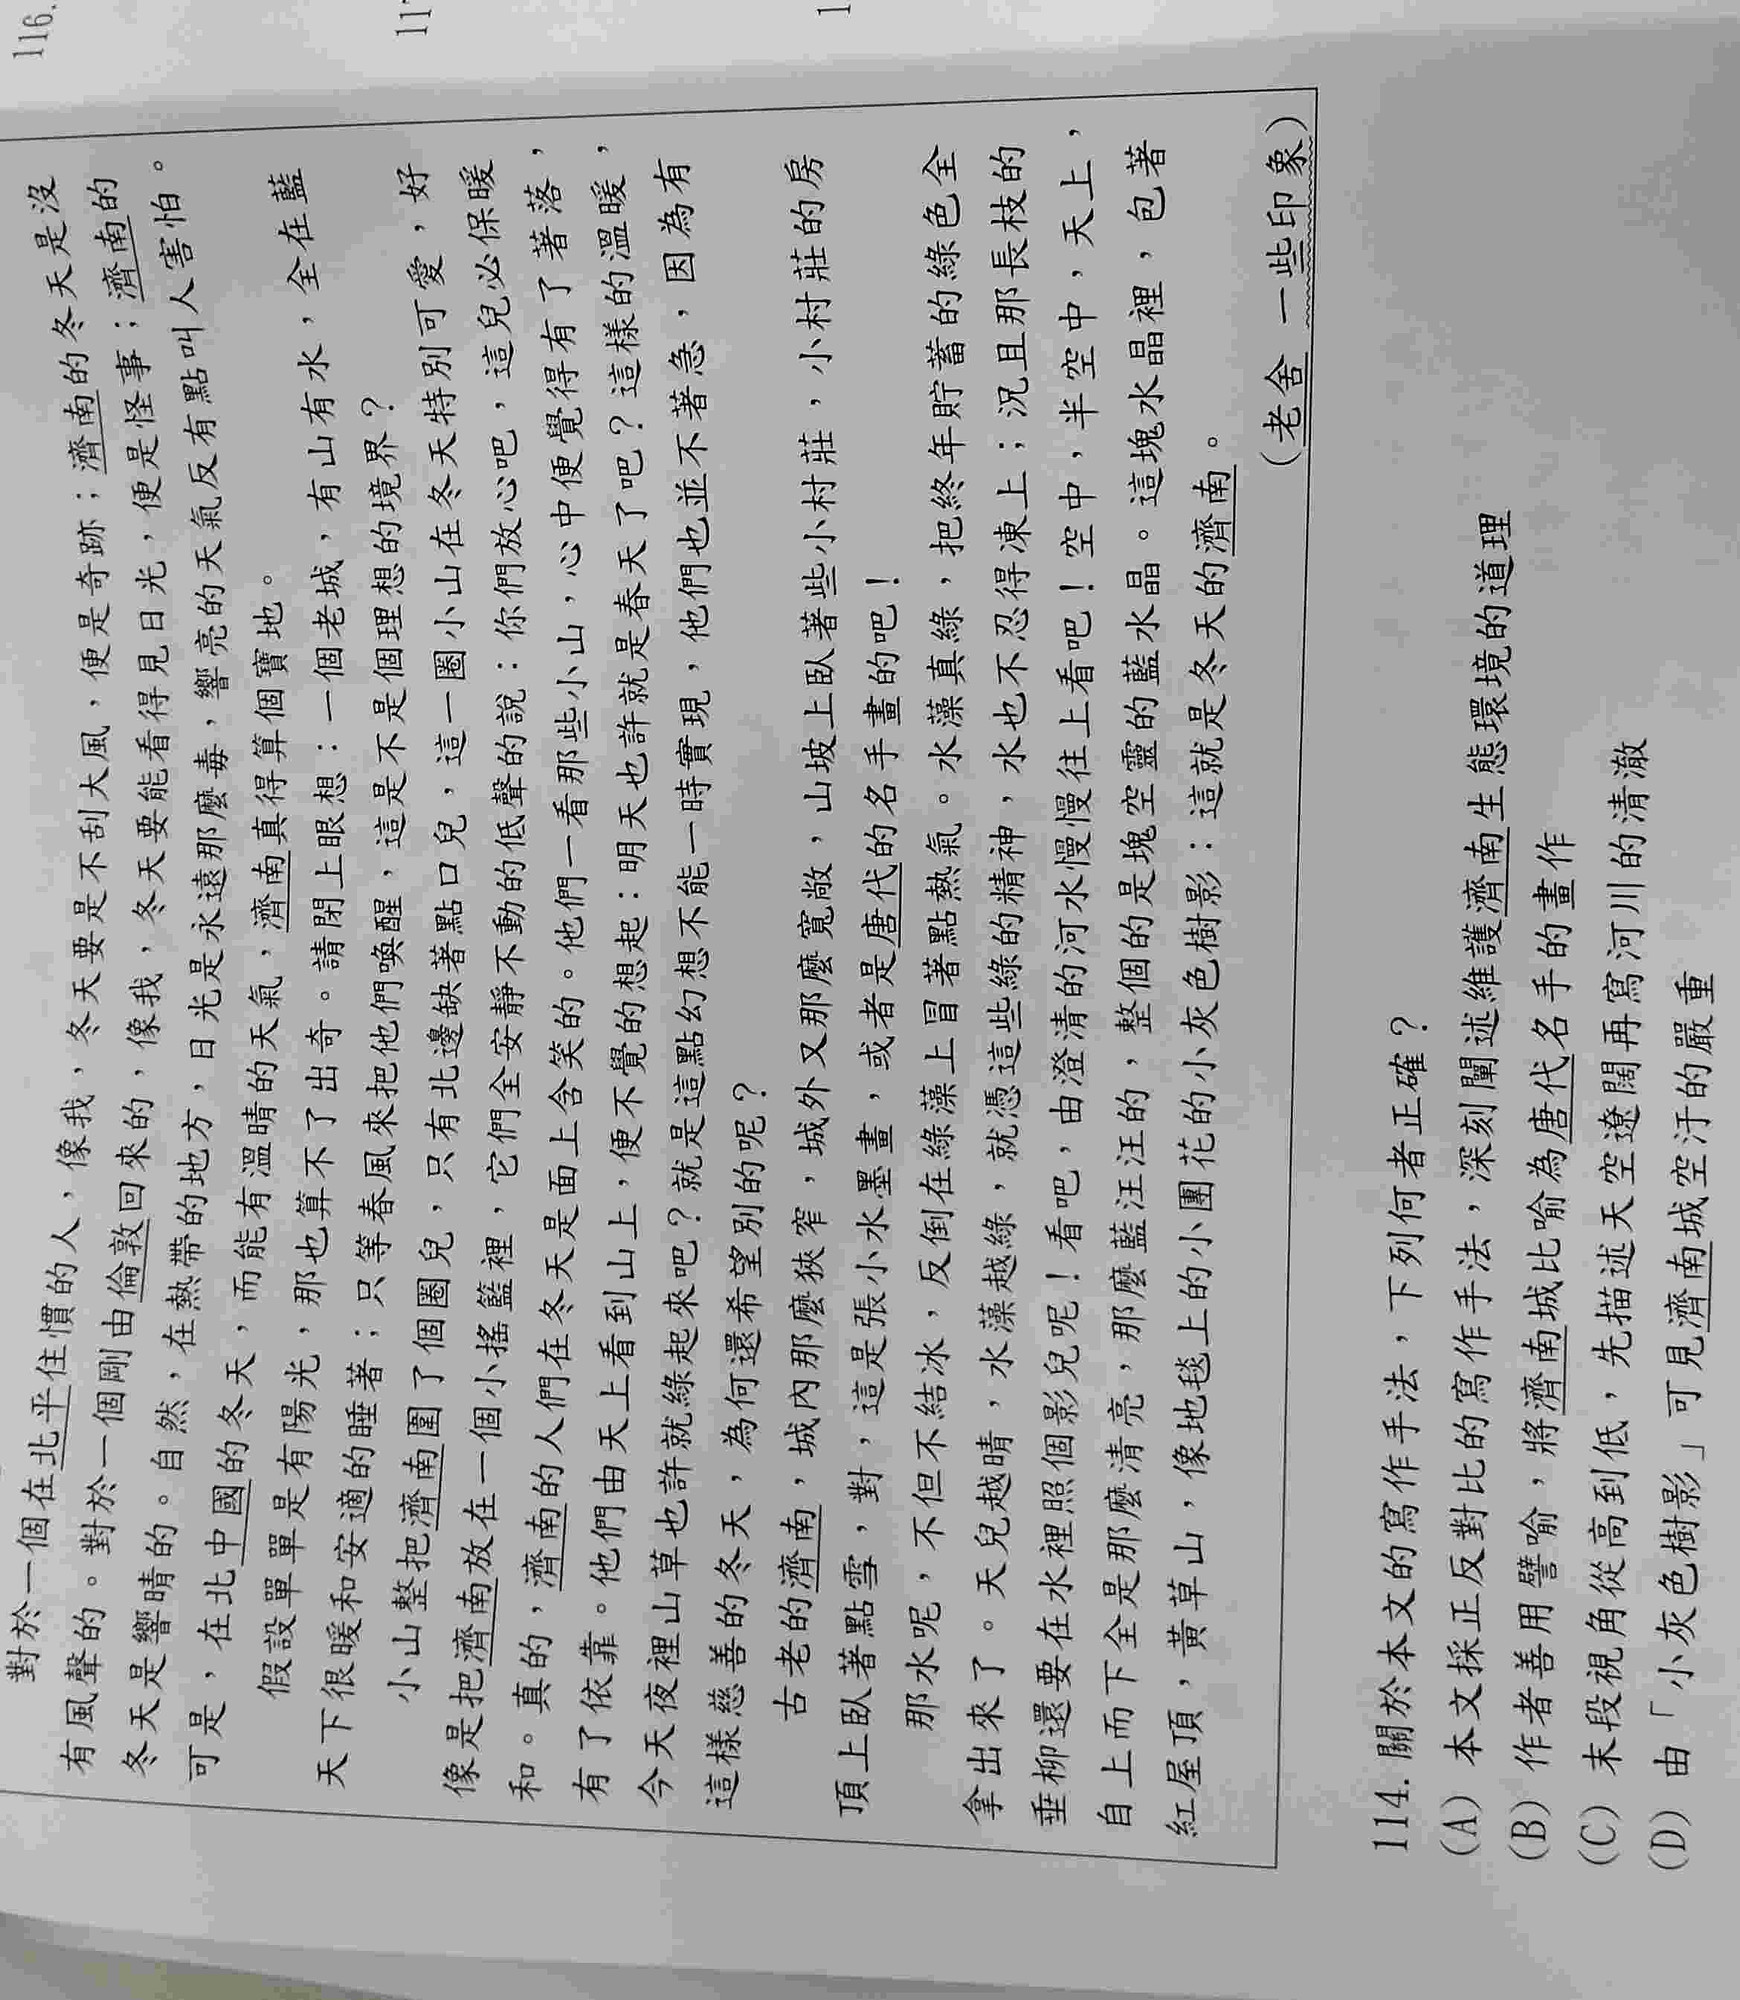 116.
11
1
對於一個在北平住慣的人，像我，冬天要是不刮大風，便是奇跡；濟南的冬天是沒
有風聲的。對於一個剛由倫敦回來的，像我，冬天要能看得見日光，便是怪事；濟南的
冬天是響晴的。自然，在熱帶的地方，日光是永遠那麼毒，響亮的天氣反有點叫人害怕。
可是，在北中國的冬天，而能有溫晴的天氣，濟南真得算個寶地。
假設單單是有陽光，那也算不了出奇。請閉上眼想：一個老城，有山有水，全在藍
天下很暖和安適的睡著；只等春風來把他們喚醒，這是不是個理想的境界？
小山整把濟南圍了個圈兒，只有北邊缺著點口兒，這一圈小山在冬天特別可愛，好
像是把濟南放在一個小搖籃裡，它們全安靜不動的低聲的說：你們放心吧，這兒必保暖
和。真的，濟南的人們在冬天是面上含笑的。他們一看那些小山，心中便覺得有了著落，
有了依靠。他們由天上看到山上，便不覺的想起：明天也許就是春天了吧？這樣的溫暖，
今天夜裡山草也許就綠起來吧？就是這點幻想不能一時實現，他們也並不著急，因為有
這樣慈善的冬天，為何還希望別的呢？
古老的濟南，城內那麼狹窄，城外又那麼寬敞，山坡上臥著些小村莊，小村莊的房
頂上臥著點雪，對，這是張小水墨畫，或者是唐代的名手畫的吧！
那水呢，不但不結冰，反倒在綠藻上冒著點熱氣。水藻真綠，把終年貯蓄的綠色全
拿出來了。天兒越晴，水藻越綠，就憑這些綠的精神，水也不忍得凍上；況且那長枝的
垂柳還要在水裡照個影兒呢！看吧，由澄清的河水慢慢往上看吧！空中，半空中，天上，
自上而下全是那麼清亮，那麼藍汪汪的，整個的是塊空靈的藍水晶。這塊水晶裡，包著
紅屋頂，黃草山，像地毯上的小團花的小灰色樹影：這就是冬天的濟南。
（老舍 一些印象）
114. 關於本文的寫作手法，下列何者正確？
(A) 本文採正反對比的寫作手法，深刻闡述維護濟南生態環境的道理
(B) 作者善用譬喻，將濟南城比喻為唐代名手的畫作
(C) 末段視角從高到低，先描述天空遼闊再寫河川的清澈
(D) 由「小灰色樹影」可見濟南城空汙的嚴重